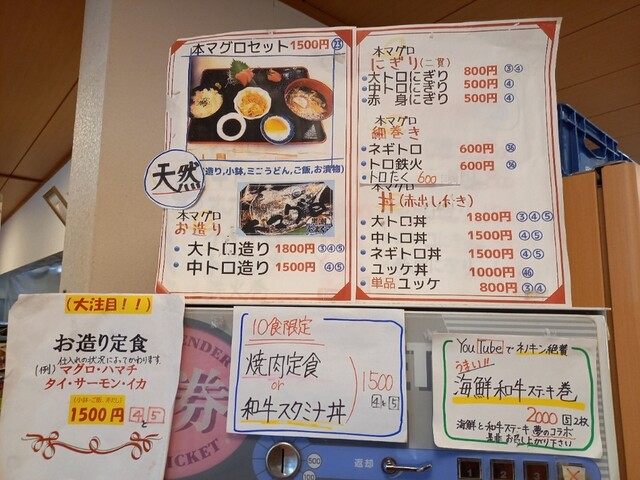 本マグロセット 1500円 ㉓
天然
造り,小鉢,ミニうどん,ご飯,お漬物)
本マグロ
お造り
大トロ造り 1800円 ③④⑤
中トロ造り 1500円 ④⑤
本マグロ
にぎり(二貫)
大トロにぎり 800円 ③④
中トロにぎり 500円 ④
赤 身にぎり 500円 ④
本マグロ
細巻き
ネギトロ 600円 ⑯
トロ鉄火 600円 ⑯
トロたく 600
本マグロ
丼(赤出し付き)
大トロ丼 1800円 ③④⑤
中トロ丼 1500円 ④⑤
ネギトロ丼 1500円 ④⑤
ユッケ丼 1000円 ㊻
単品ユッケ 800円 ③④
(大注目!!)
お造り定食
仕入れの状況によってかわります
(例)マグロ・ハマチ
タイ・サーモン・イカ
(小鉢・ご飯、赤だし)
1500円 4と5
10食限定
焼肉定食
or
和牛スタミナ丼
1500
4と5
YouTubeでネキン絶賛
うまい!!
海鮮和牛ステーキ巻
2000 5 2枚
海鮮と和牛ステーキ 夢のコラボ
是非お召し上がり下さい
VENDER
券
TICKET
500
100
返却
1 2 3